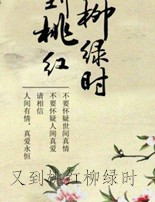 到桃红
柳绿时
不要怀疑世间真情
不要怀疑人间真爱
请相信
人间有情，真爱永恒
又到桃红柳绿时